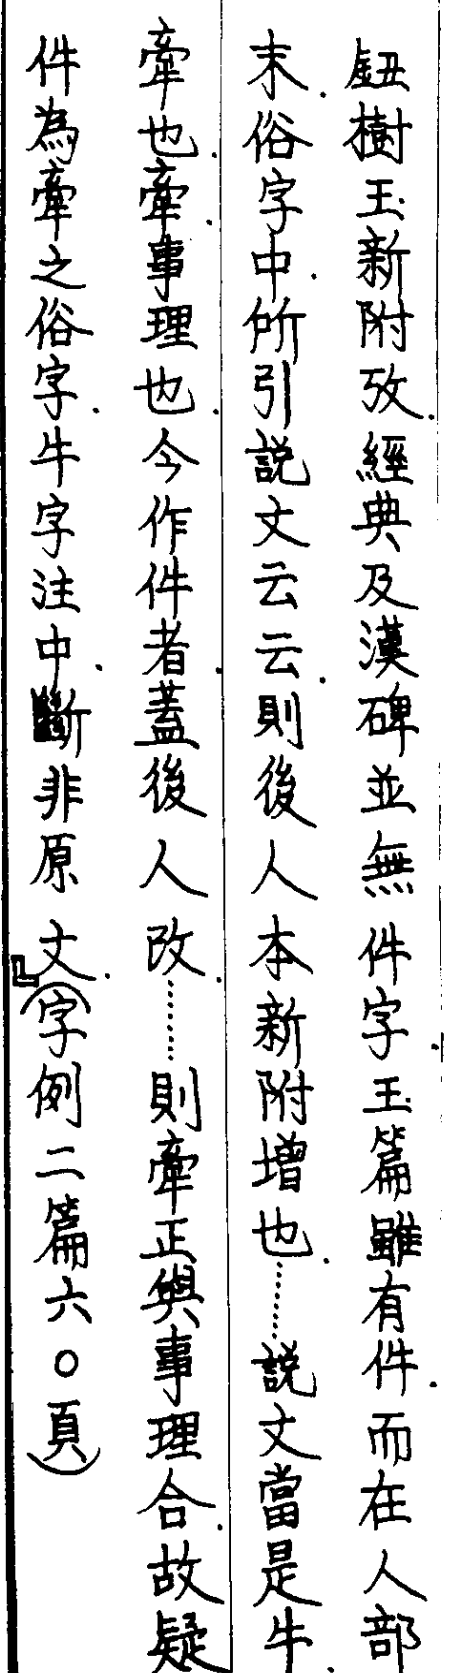 鈕樹玉新附攷．經典及漢碑並無件字．玉篇雖有件．而在人部
末．俗字中．所引説文云云．則後人本新附增也．……説文當是牛．
牽也．牽．事理也．今作件者．蓋後人改．……則牽正與事理合．故疑
件為牽之俗字．牛字注中．斷非原文．』（字例二篇六０頁）